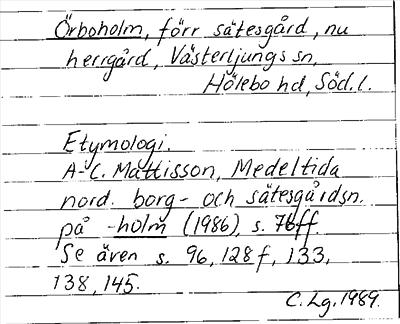 Örboholm, förr sätesgård, nu
herrgård, Västerljungs sn,
Hölebo hd, Söd.l.
Etymologi.
A-C. Mattisson, Medeltida
nord. borg- och sätesgårdsn.
på -holm (1986), s. 76ff.
Se även s. 96, 128f, 133,
138, 145.
C. Lg. 1989.